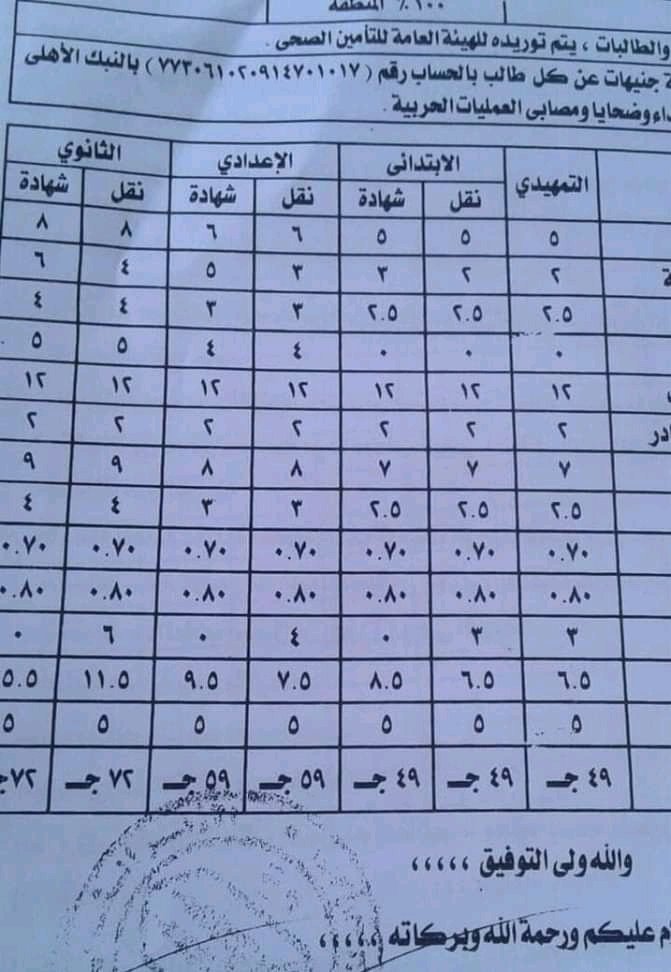 ١٠٠ ٪ المنطقة
والطالبات ، يتم توريده للهيئة العامة للتأمين الصحى .
جنيهات عن كل طالب بالحساب رقم ( ٧٧٣٠٦١٠٢٠٩١٤٧٠١٠١٧ ) بالنبك الأهلى
وضحايا ومصابى العمليات الحربية .
التمهيدي الابتدائى الإعدادي الثانوي
نقل شهادة نقل شهادة نقل شهادة
٥ ٥ ٥ ٦ ٦ ٨ ٨
٢ ٢ ٣ ٣ ٥ ٤ ٦
٢.٥ ٢.٥ ٢.٥ ٣ ٣ ٤ ٤
٠ ٠ ٠ ٤ ٤ ٥ ٥
١٢ ١٢ ١٢ ١٢ ١٢ ١٢ ١٢
٢ ٢ ٢ ٢ ٢ ٢ ٢
٧ ٧ ٧ ٨ ٨ ٩ ٩
٢.٥ ٢.٥ ٢.٥ ٣ ٣ ٤ ٤
٠.٧٠ ٠.٧٠ ٠.٧٠ ٠.٧٠ ٠.٧٠ ٠.٧٠ ٠.٧٠
٠.٨٠ ٠.٨٠ ٠.٨٠ ٠.٨٠ ٠.٨٠ ٠.٨٠ ٠.٨٠
٣ ٣ ٠ ٤ ٠ ٦ ٠
٦.٥ ٦.٥ ٨.٥ ٧.٥ ٩.٥ ١١.٥ ٥.٥
٥ ٥ ٥ ٥ ٥ ٥ ٥
٤٩ جـ ٤٩ جـ ٤٩ جـ ٥٩ جـ ٥٩ جـ ٧٢ جـ ٧٢ جـ
والله ولى التوفيق ،،،،،
عليكم ورحمة الله وبركاته ،،،،،